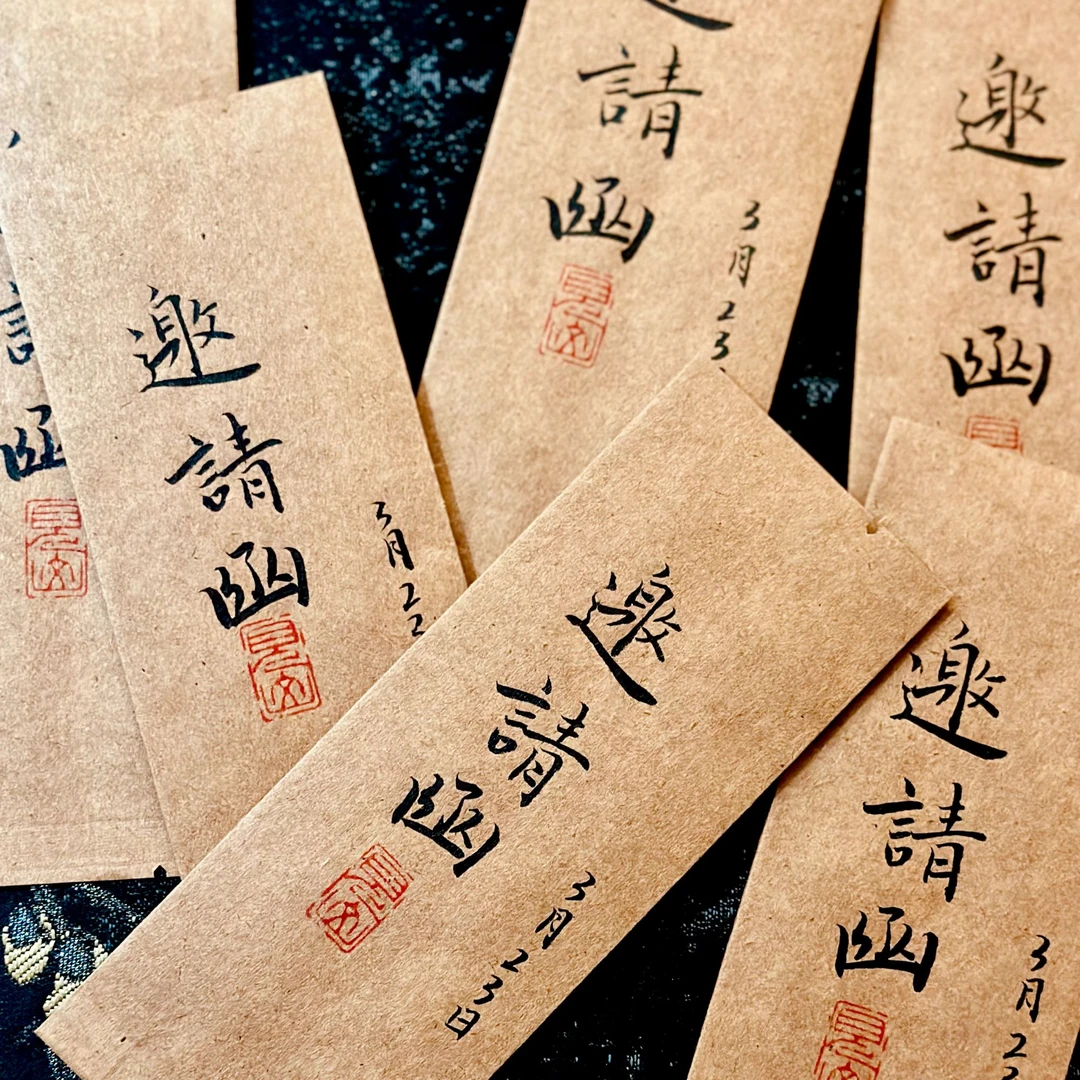 請
函
邀
請
函
3月22
請
函
3月23
邀
請
函
邀
請
函
3月23日
邀
請
函
3月2